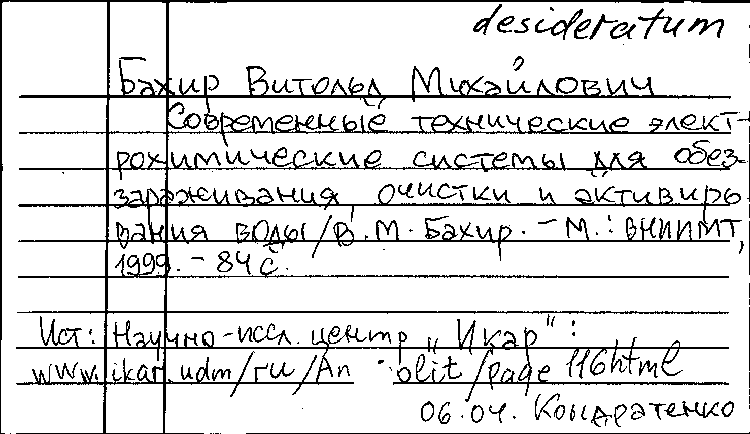 desideratum
Бахир Витольд Михайлович
Современные технические элект-
рохимические системы для обез-
зараживания, очистки и активиро
вания воды/В.М.Бахир. – М.: ВНИИМТ,
1999. – 84 с.
Ист: Научно-иссл. центр „Икар":
www.ikar.udm/ru/An olit/page 116html
06.04. Кондратенко